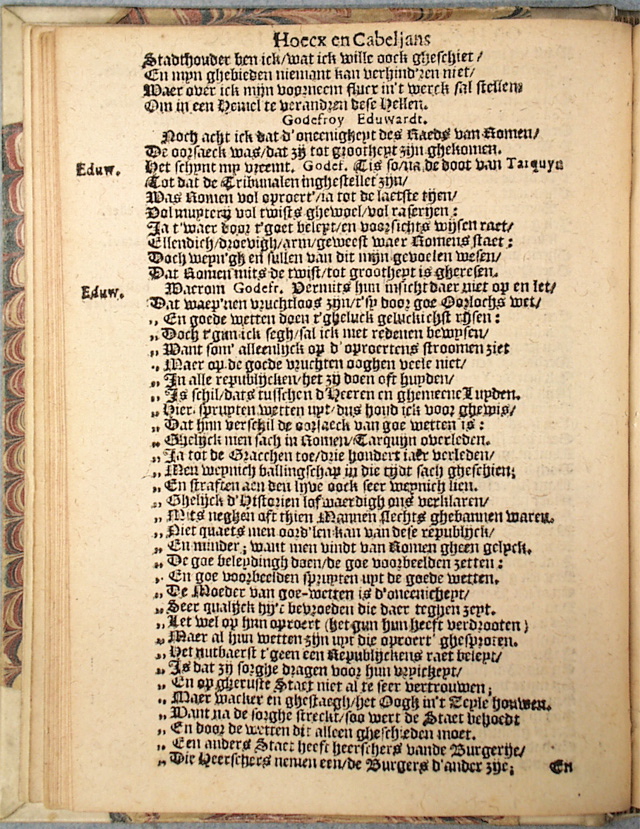 Hoecx en Cabeljans
Stadthouder ben ick/wat ick wille oock gheschiet/
En mijn ghebieden niemant kan verhind'ren niet/
Maer over ick mijn voorneem fluer in't werck sal stellen
Om in een Hemel te verandren dese Hellen.
Godefroy Eduwardt.
Noch acht ick dat d'oneenigheyt des Raeds van Romen/
De oorsaeck was/dat zy tot grootheyt zijn ghekomen.
Eduw. Het schijnt my vreemt. Godef. Tis so/na de doot van Tarquyn
Tot dat de Tribunalen inghestellet zijn/
Was Romen vol oproert'/ja tot de laetste tijen/
Vol muytery vol twists ghewoel/vol raserijen:
Ja t'waer door t'goet beleyt/en voorsichts wijsen raet/
Ellendich/droevigh/arm/geweest waer Romens staet:
Doch weyn'gh en sullen van dit mijn gevoelen wesen/
Dat Romen mits de twist/tot grootheyt is gheresen.
Eduw. Waerom Godefr. Vermits hun insicht daer niet op en let/
Dat waep'nen vruchtloos zijn/t'sy door goe Oorlochs wet/
„ En goede wetten doen t'gheluck geluckichst rijsen:
„ Doch t'gun ick segh/sal ick met redenen bewysen/
„ Want som' alleenlijck op d'oproertens stroomen ziet
„ Maer op de goede vruchten ooghen veele niet/
„ In alle republijcken/het zy doen oft huyden/
„ Is schil/dats tusschen d'Heeren en ghemeene Luyden.
„ Hier spruyten wetten uyt/dus houd ick voor ghewis/
„ Dat hun verschil de oorsaeck van goe wetten is:
„ Ghelijck men sach in Romen/Tarquijn overleden.
„ Ja tot de Gracchen toe/drie hondert jaer verleden/
„ Men weynich ballingschap in die tijdt sach gheschien;
„ En straffen aen den lijve oock seer weynich lien.
„ Ghelijck d'Historien lofwaerdigh ons verklaren/
„ Mits neghen oft thien Mannen slechts ghebannen waren.
„ Niet quaets men oord'len kan van dese republijck/
„ En minder; want men vindt van Romen gheen gelyck.
„ De goe beleydingh doen/de goe voorbeelden zetten:
„ En goe voorbeelden spruyten uyt de goede wetten.
„ De Moeder van goe-wetten is d'oneenicheyt/
„ Seer qualijck hy't bevroeden die daer teghen zeyt.
„ Let wel op hun oproert (het gun hun heeft verdrooten)
„ Maer al hun wetten zijn uyt die oproert' ghesproten.
„ Het nutbaerst t'geen een Republijckens raet beleyt/
„ Is dat zy sorghe dragen voor hun vryicheyt/
„ En op gheruste Staet niet al te seer vertrouwen;
„ Maer wacker en ghestaegh/het Oogh in't Zeyle houwen.
„ Want na de sorghe streckt/soo wert de Staet behoedt
„ En door de wetten dit alleen gheschieden moet.
„ Een anders Staet heeft heerschers vande Burgerije/
„ Die Heerschers nemen een/de Burgers d'ander zye;
En